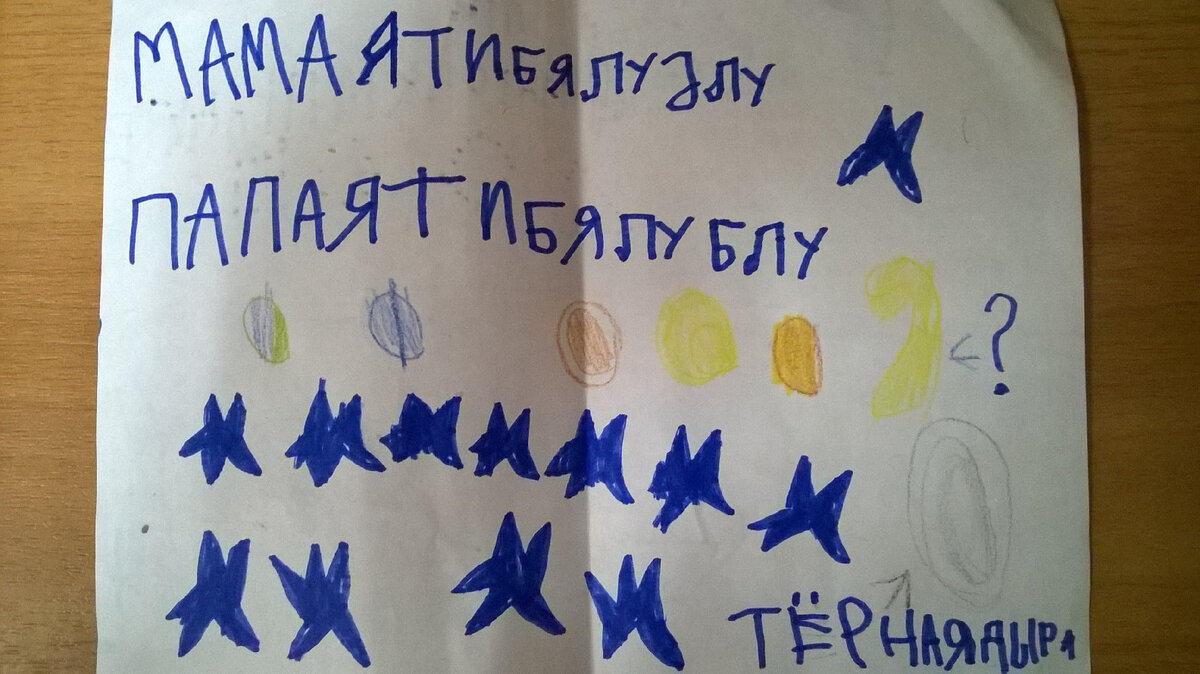 МАМАЯТИБЯЛУБЛУ
ПАПАЯТИБЯЛУБЛУ
?
ТЁРНАЯДЫРА